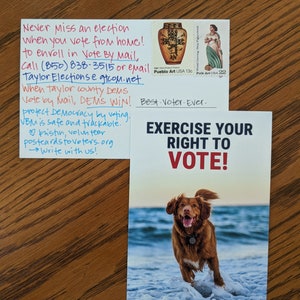 Never Miss an election
when you vote from home!
to enroll in Vote By Mail,
call (850) 838-3515 or email
TaylorElections@gtcom.net
When Taylor county Dems
Vote by Mail, DEMS WIN!
protect Democracy by voting
VBM is safe and trackable.
♡ Kristin, volunteer
postcardstovoters.org
→ Write with us!
Pueblo Art USA 13c
Folk Art USA
Best. Voter. Ever.
EXERCISE YOUR
RIGHT TO
VOTE!